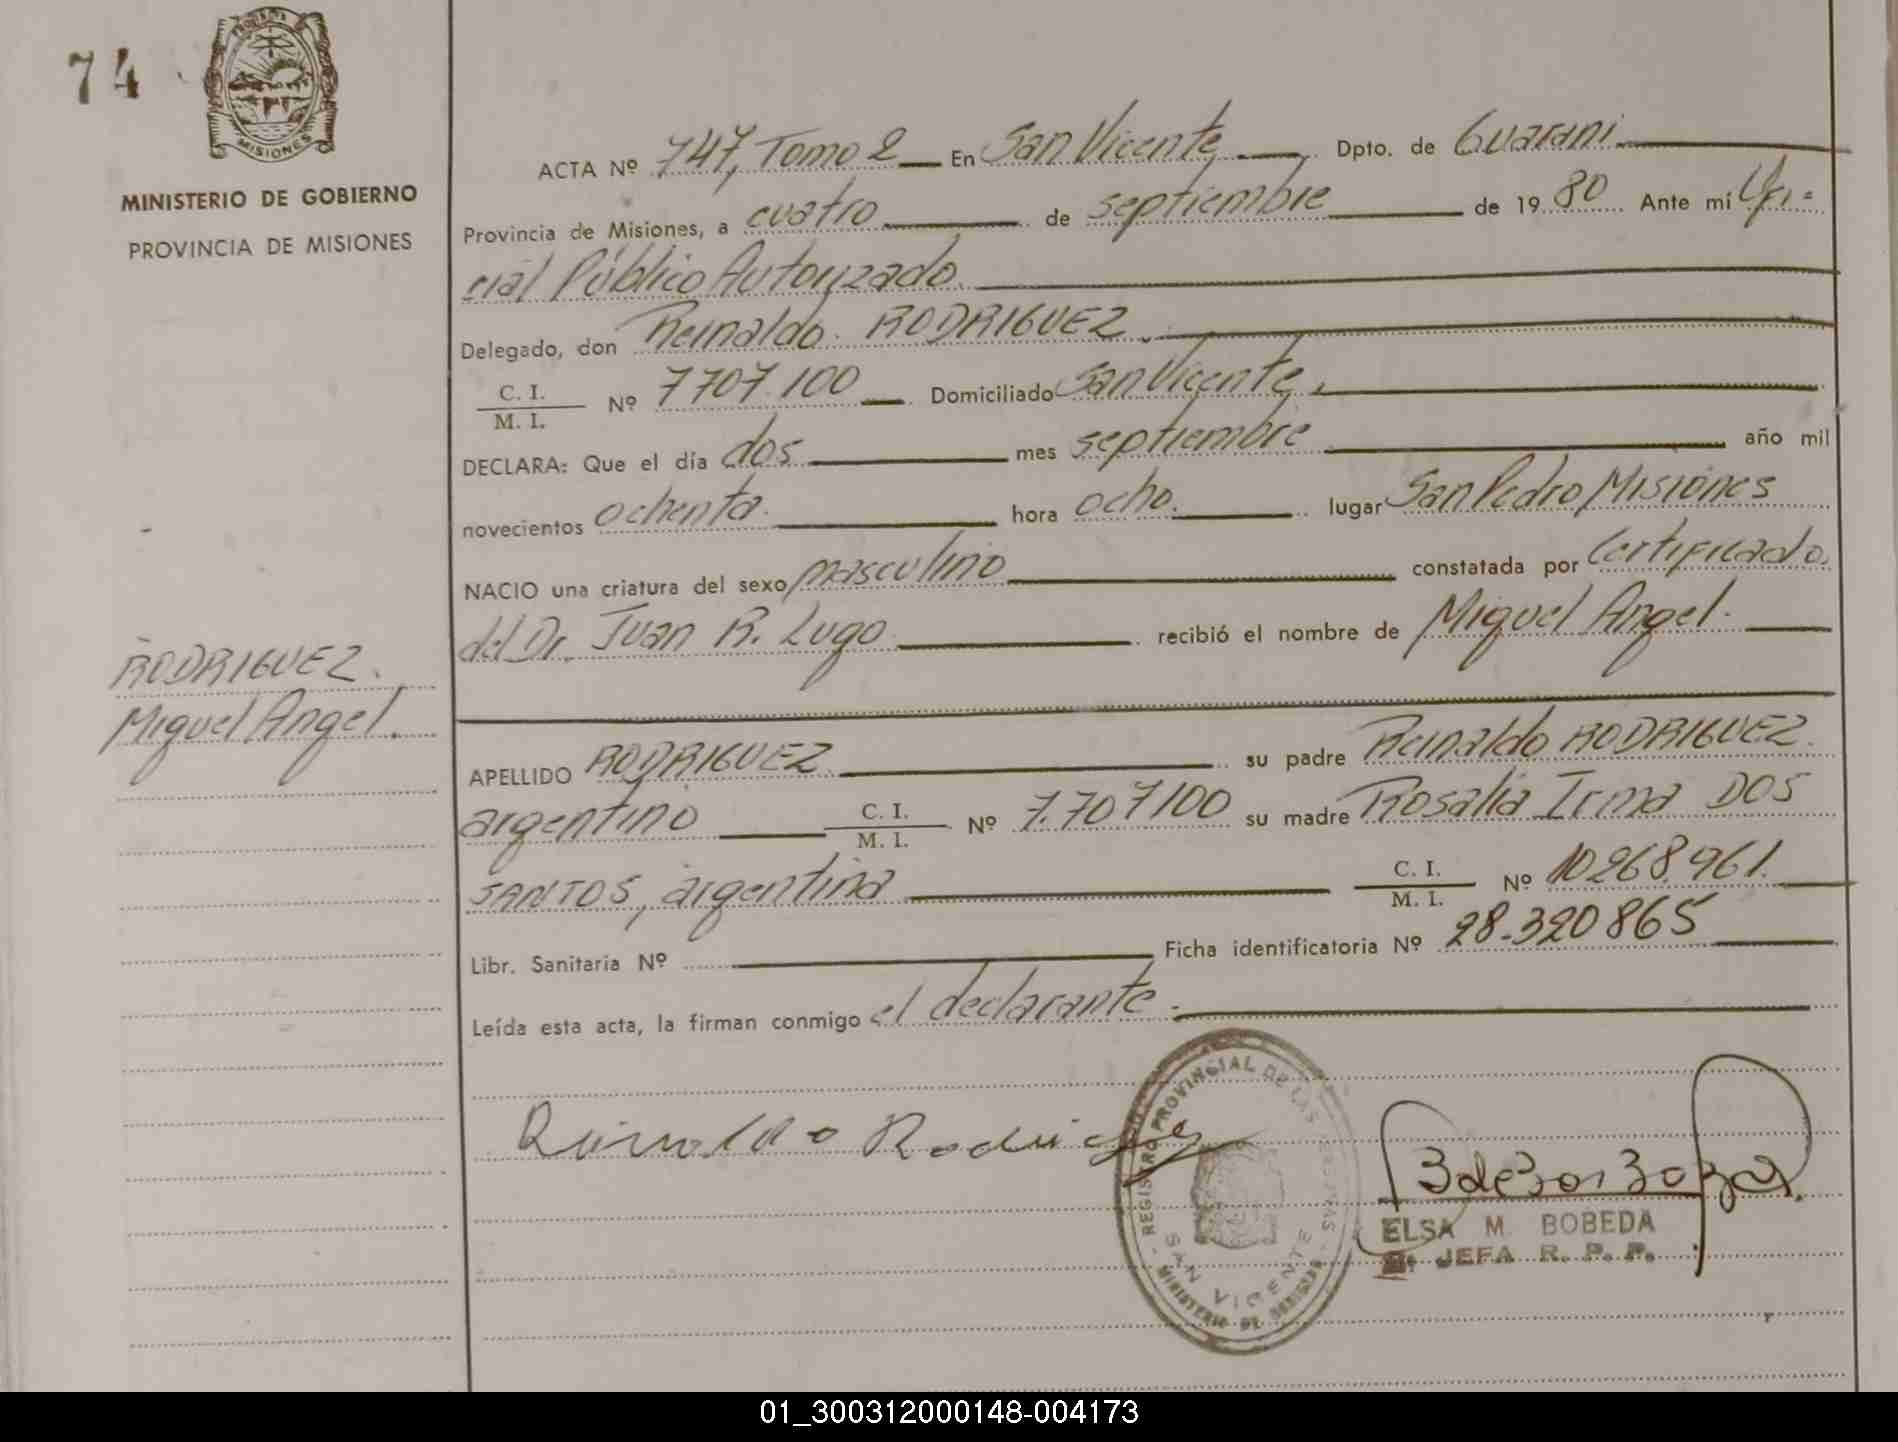 74
PROVINCIA
MISIONES
MINISTERIO DE GOBIERNO
PROVINCIA DE MISIONES
RODRIGUEZ.
Miguel Angel.
ACTA Nº 747, Tomo 2 En San Vicente Dpto. de Guarani
Provincia de Misiones, a cuatro de septiembre de 1980 Ante mí Ofi=
cial Público Autorizado.
Delegado, don Reinaldo RODRIGUEZ.
C. I.
M. I. Nº 7707.100 Domiciliado San Vicente.
DECLARA: Que el día dos mes septiembre año mil
novecientos ochenta hora ocho. lugar San Pedro Misiones
NACIO una criatura del sexo masculino constatada por Certificado
del Dr. Juan R. Lugo recibió el nombre de Miguel Angel.
APELLIDO RODRIGUEZ su padre Reinaldo RODRIGUEZ
argentino C. I.
M. I. Nº 7.707100 su madre Rosalia Irma DOS
SANTOS, argentina C. I.
M. I. Nº 10268.961.
Libr. Sanitaria Nº Ficha identificatoria Nº 28.320865
Leída esta acta, la firman conmigo el declarante.
Reinaldo Rodriguez
REGISTRO PROVINCIAL DE LAS PERSONAS
SAN VICENTE
MINISTERIO DE GOBIERNO
ELSA M. BOBEDA
JEFA R. P. P.
01_300312000148-004173